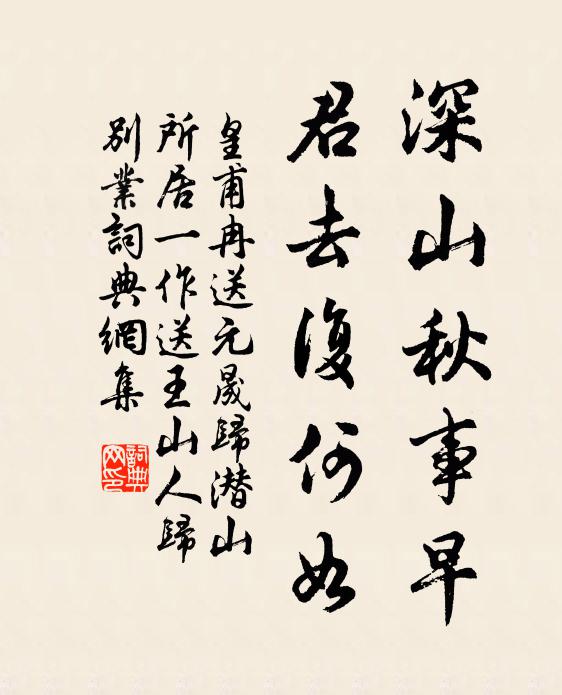 深山秋事早
君去復何如
皇甫冉送元晟歸潜山
所居一作送王山人歸
別業詞典網集
詞典网印